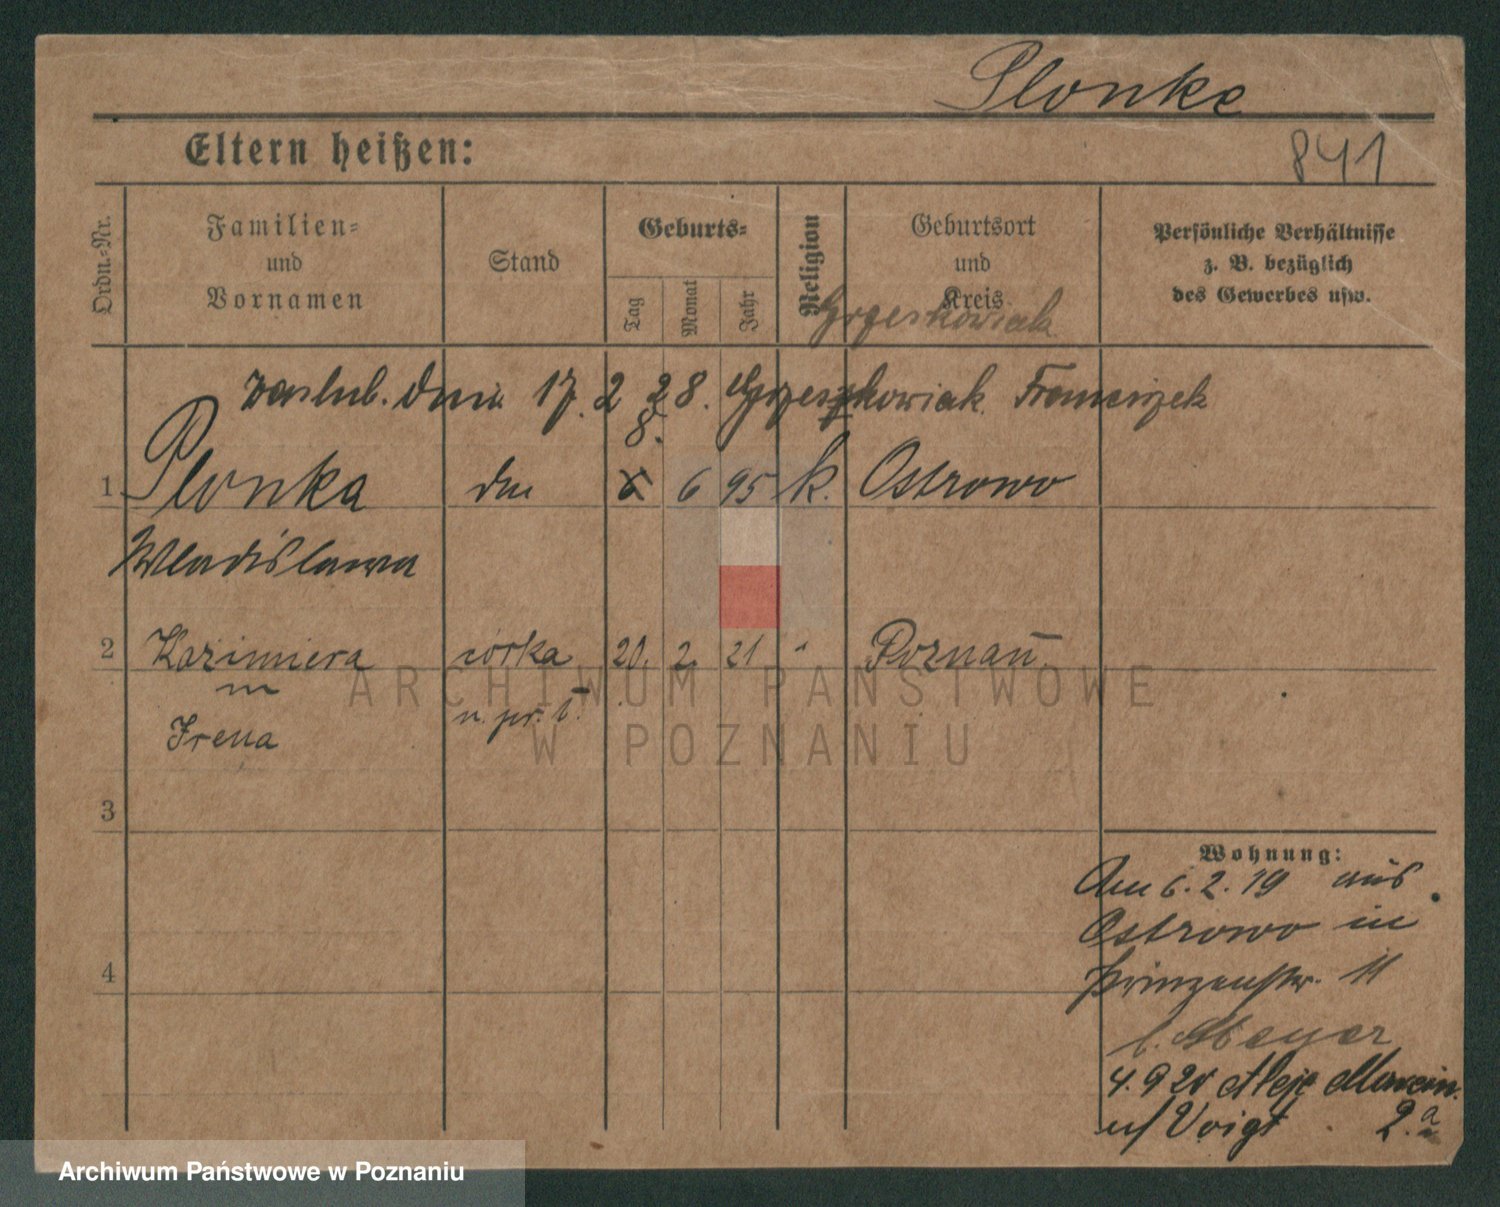 Plonke
841
Eltern heißen:
Ordn.-Nr.
Familien-
und
Vornamen
Stand
Geburts-
Tag
Monat
Jahr
Religion
Geburtsort
und
Kreis
Persönliche Verhältnisse
z. B. bezüglich
des Gewerbes usw.
Grzeskowiak
zaslub. dnia 17. 2 28. Grzeszkowiak Franciszek
8.
1 Plonka 6 6 95 k. Ostrowo
Wladislawa
2 Kazimiera córka 20. 2. 21 " Poznań
m
Irena n. pr. ł.
3
4
Wohnung:
Am 6. 2. 19 aus
Ostrowo in
Prinzenstr. 11
b. Meyer
4. 9 20 Aleje Marcin.
u/ Voigt 2.a
ARCHIWUM PAŃSTWOWE
W POZNANIU
Archiwum Państwowe w Poznaniu